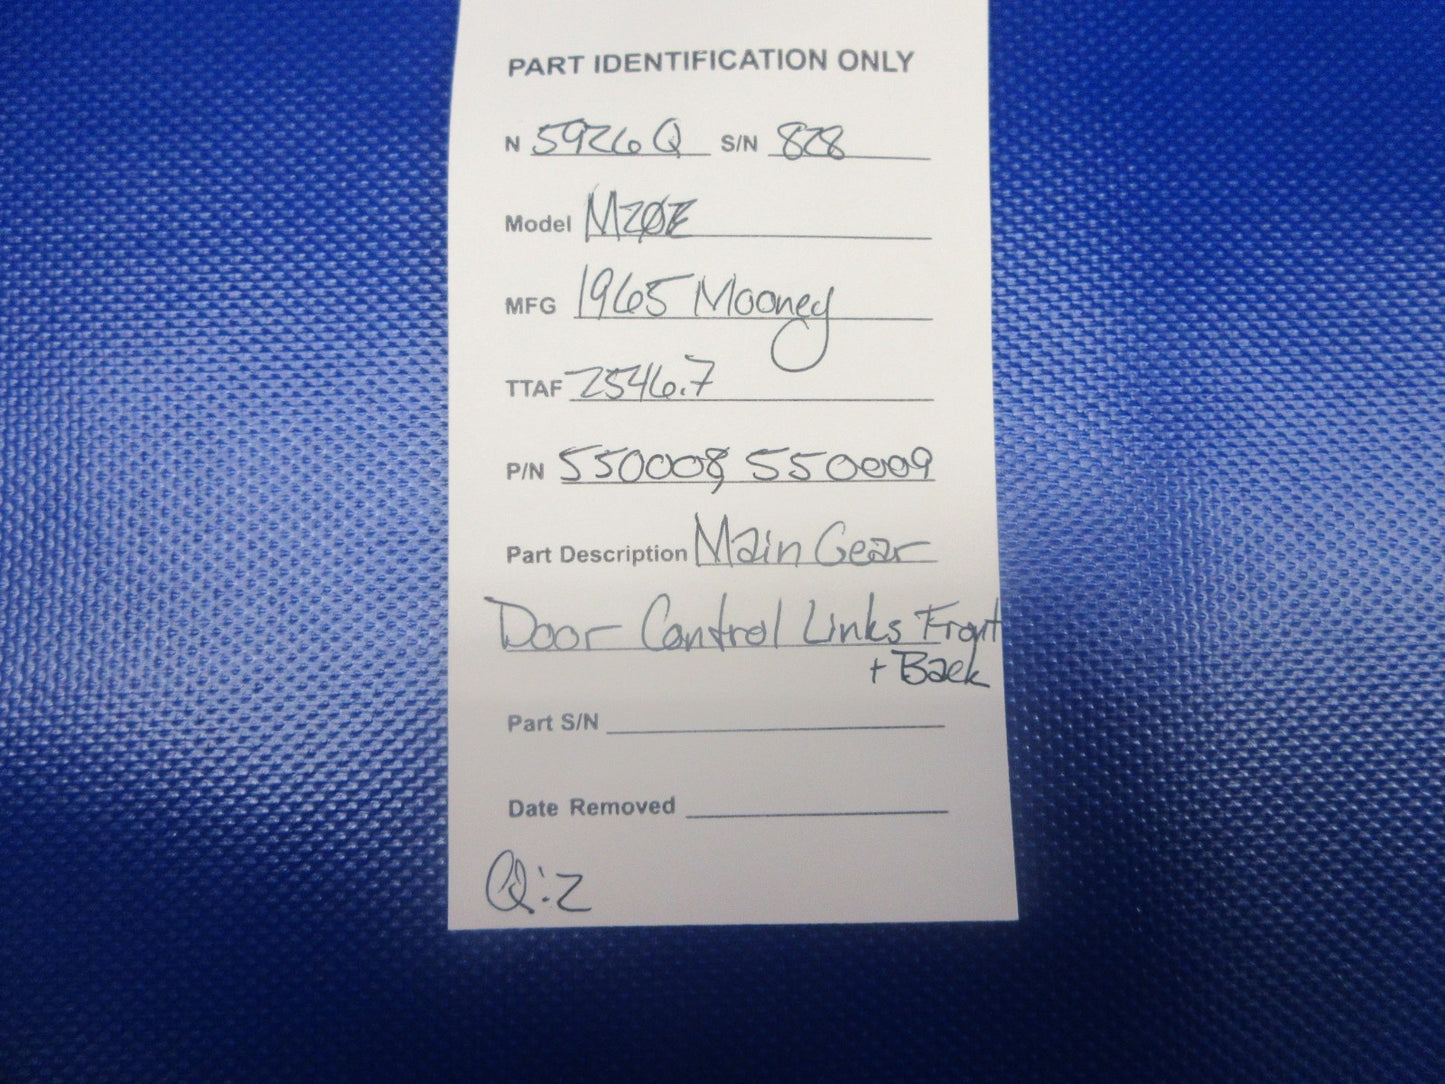 PART IDENTIFICATION ONLY
N 5926Q S/N 828
Model M20E
MFG 1965 Mooney
TTAF 2546.7
P/N 550008, 550009
Part Description Main Gear
Door Control Links Front
+ Back
Part S/N
Date Removed
Q:2